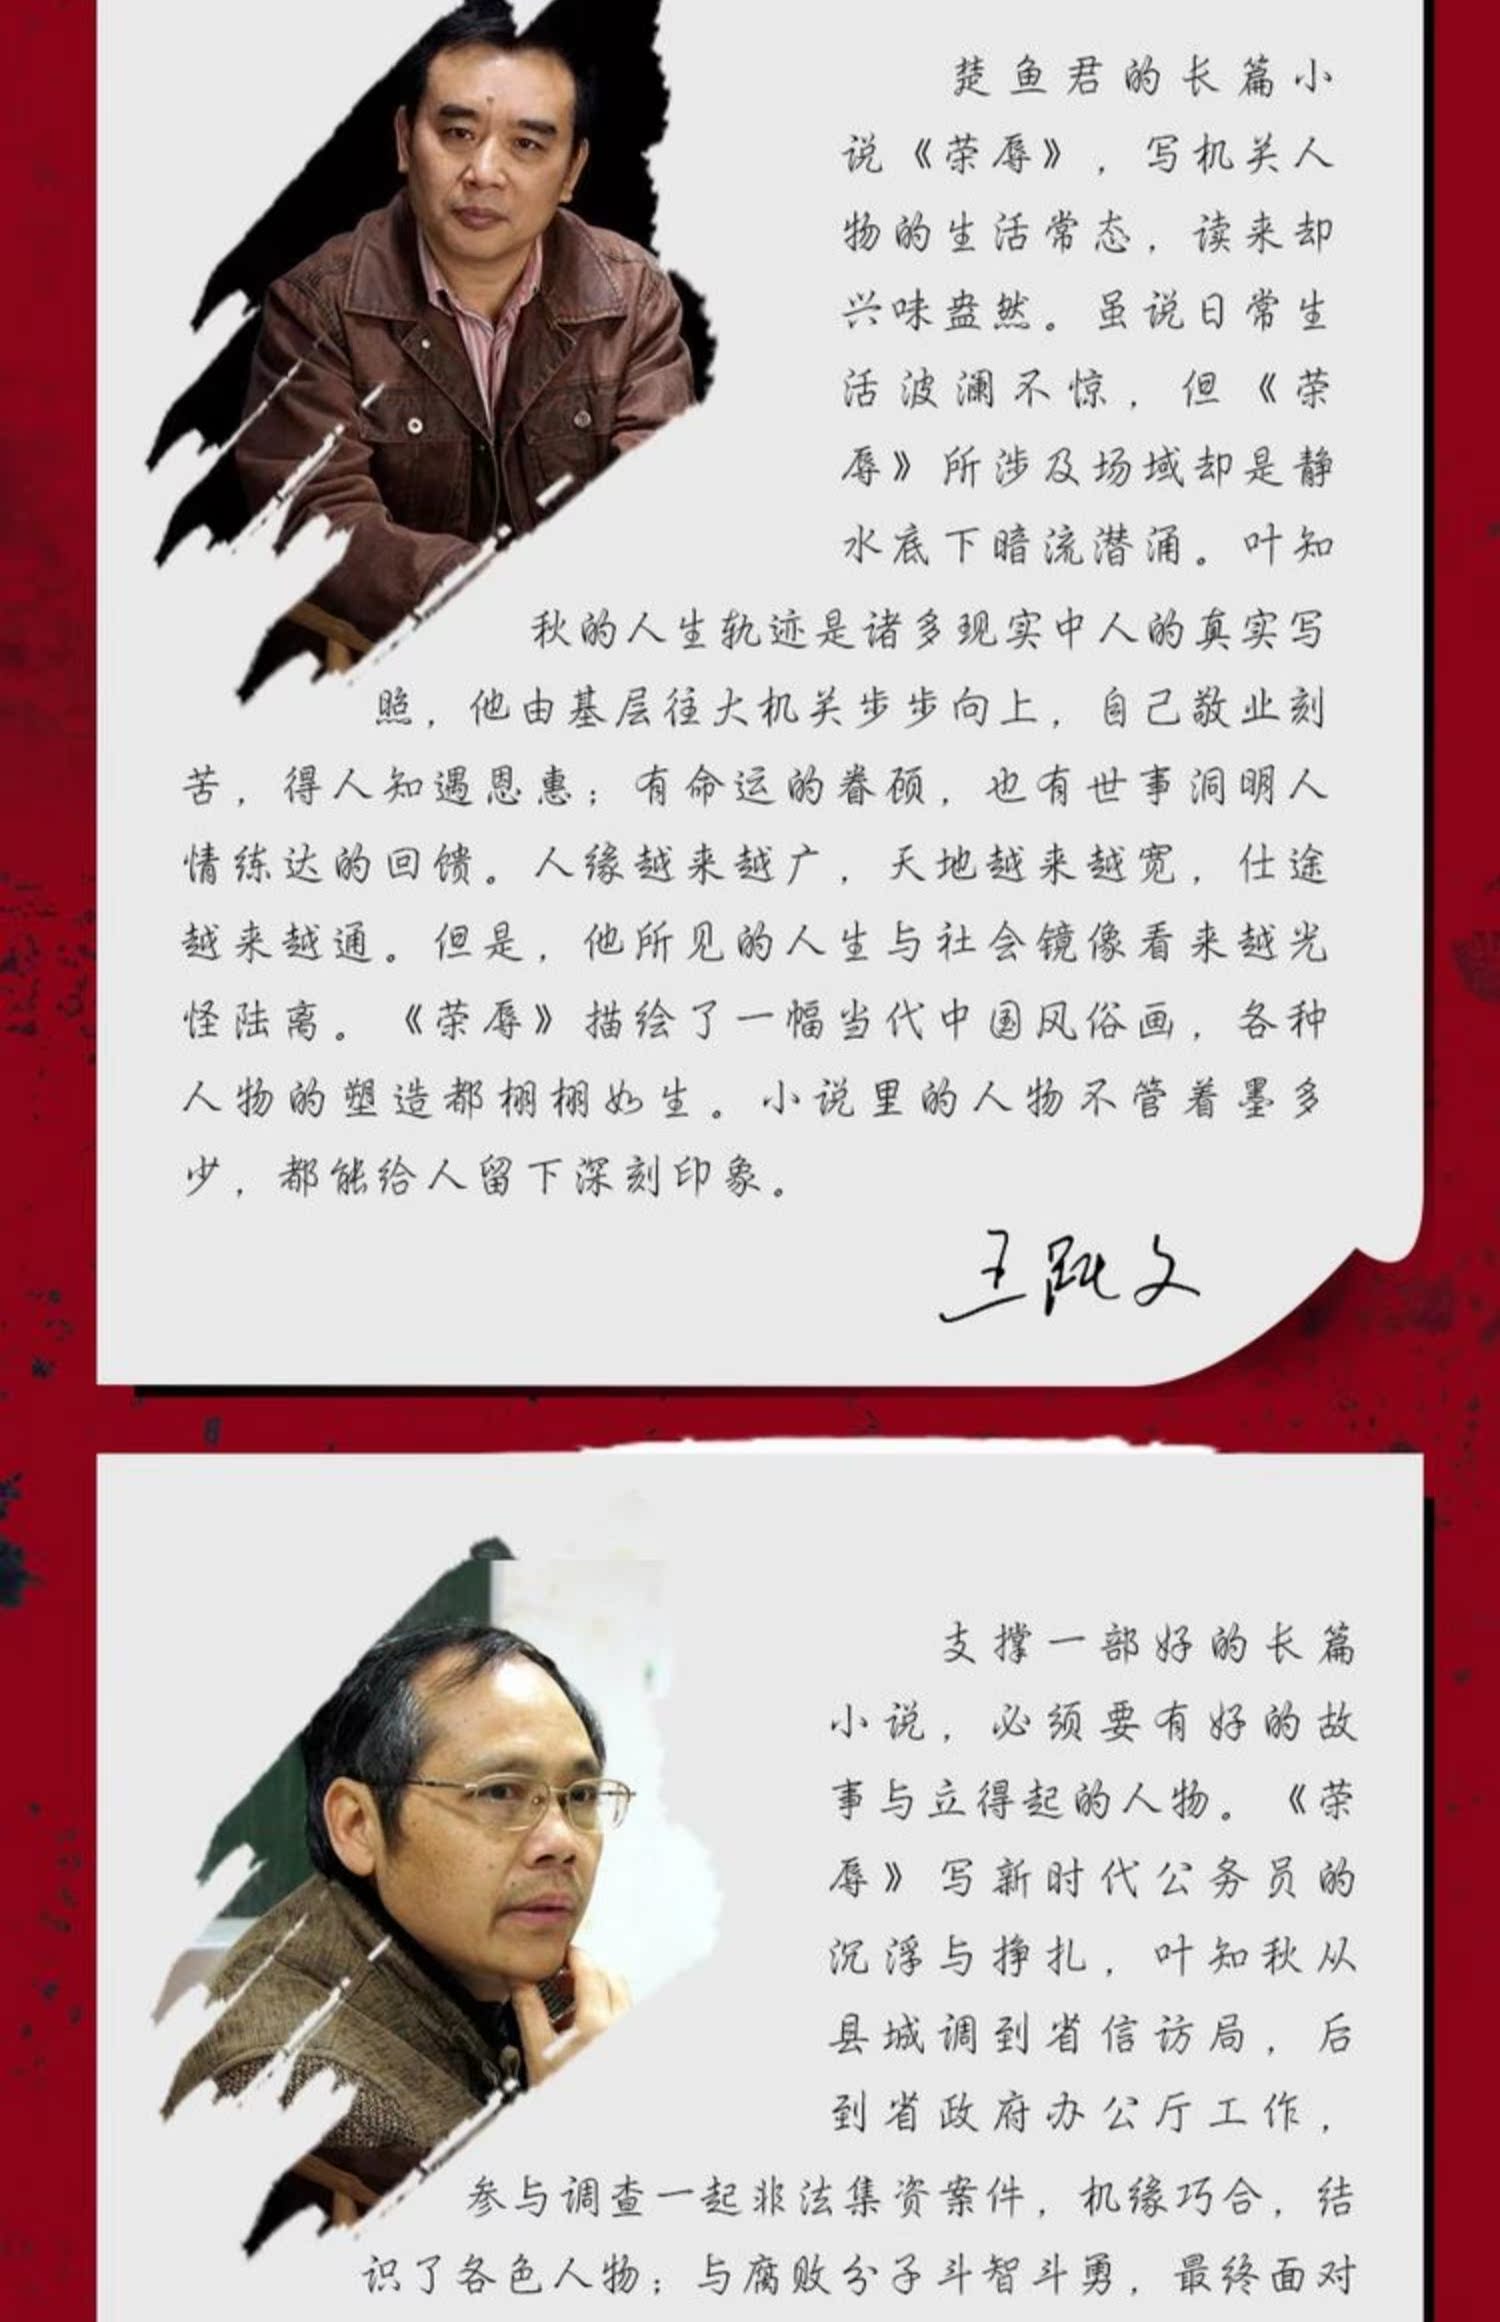 楚鱼君的长篇小
说《荣辱》，写机关人
物的生活常态，读来却
兴味盎然。虽说日常生
活波澜不惊，但《荣
辱》所涉及场域却是静
水底下暗流潜涌。叶知
秋的人生轨迹是诸多现实中人的真实写
照，他由基层往大机关步步向上，自己敬业刻
苦，得人知遇恩惠；有命运的眷顾，也有世事洞明人
情练达的回馈。人缘越来越广，天地越来越宽，仕途
越来越通。但是，他所见的人生与社会镜像看来越光
怪陆离。《荣辱》描绘了一幅当代中国风俗画，各种
人物的塑造都栩栩如生。小说里的人物不管着墨多
少，都能给人留下深刻印象。
王跃文
支撑一部好的长篇
小说，必须要有好的故
事与立得起的人物。《荣
辱》写新时代公务员的
沉浮与挣扎，叶知秋从
县城调到省信访局，后
到省政府办公厅工作，
参与调查一起非法集资案件，机缘巧合，结
识了各色人物；与腐败分子斗智斗勇，最终面对